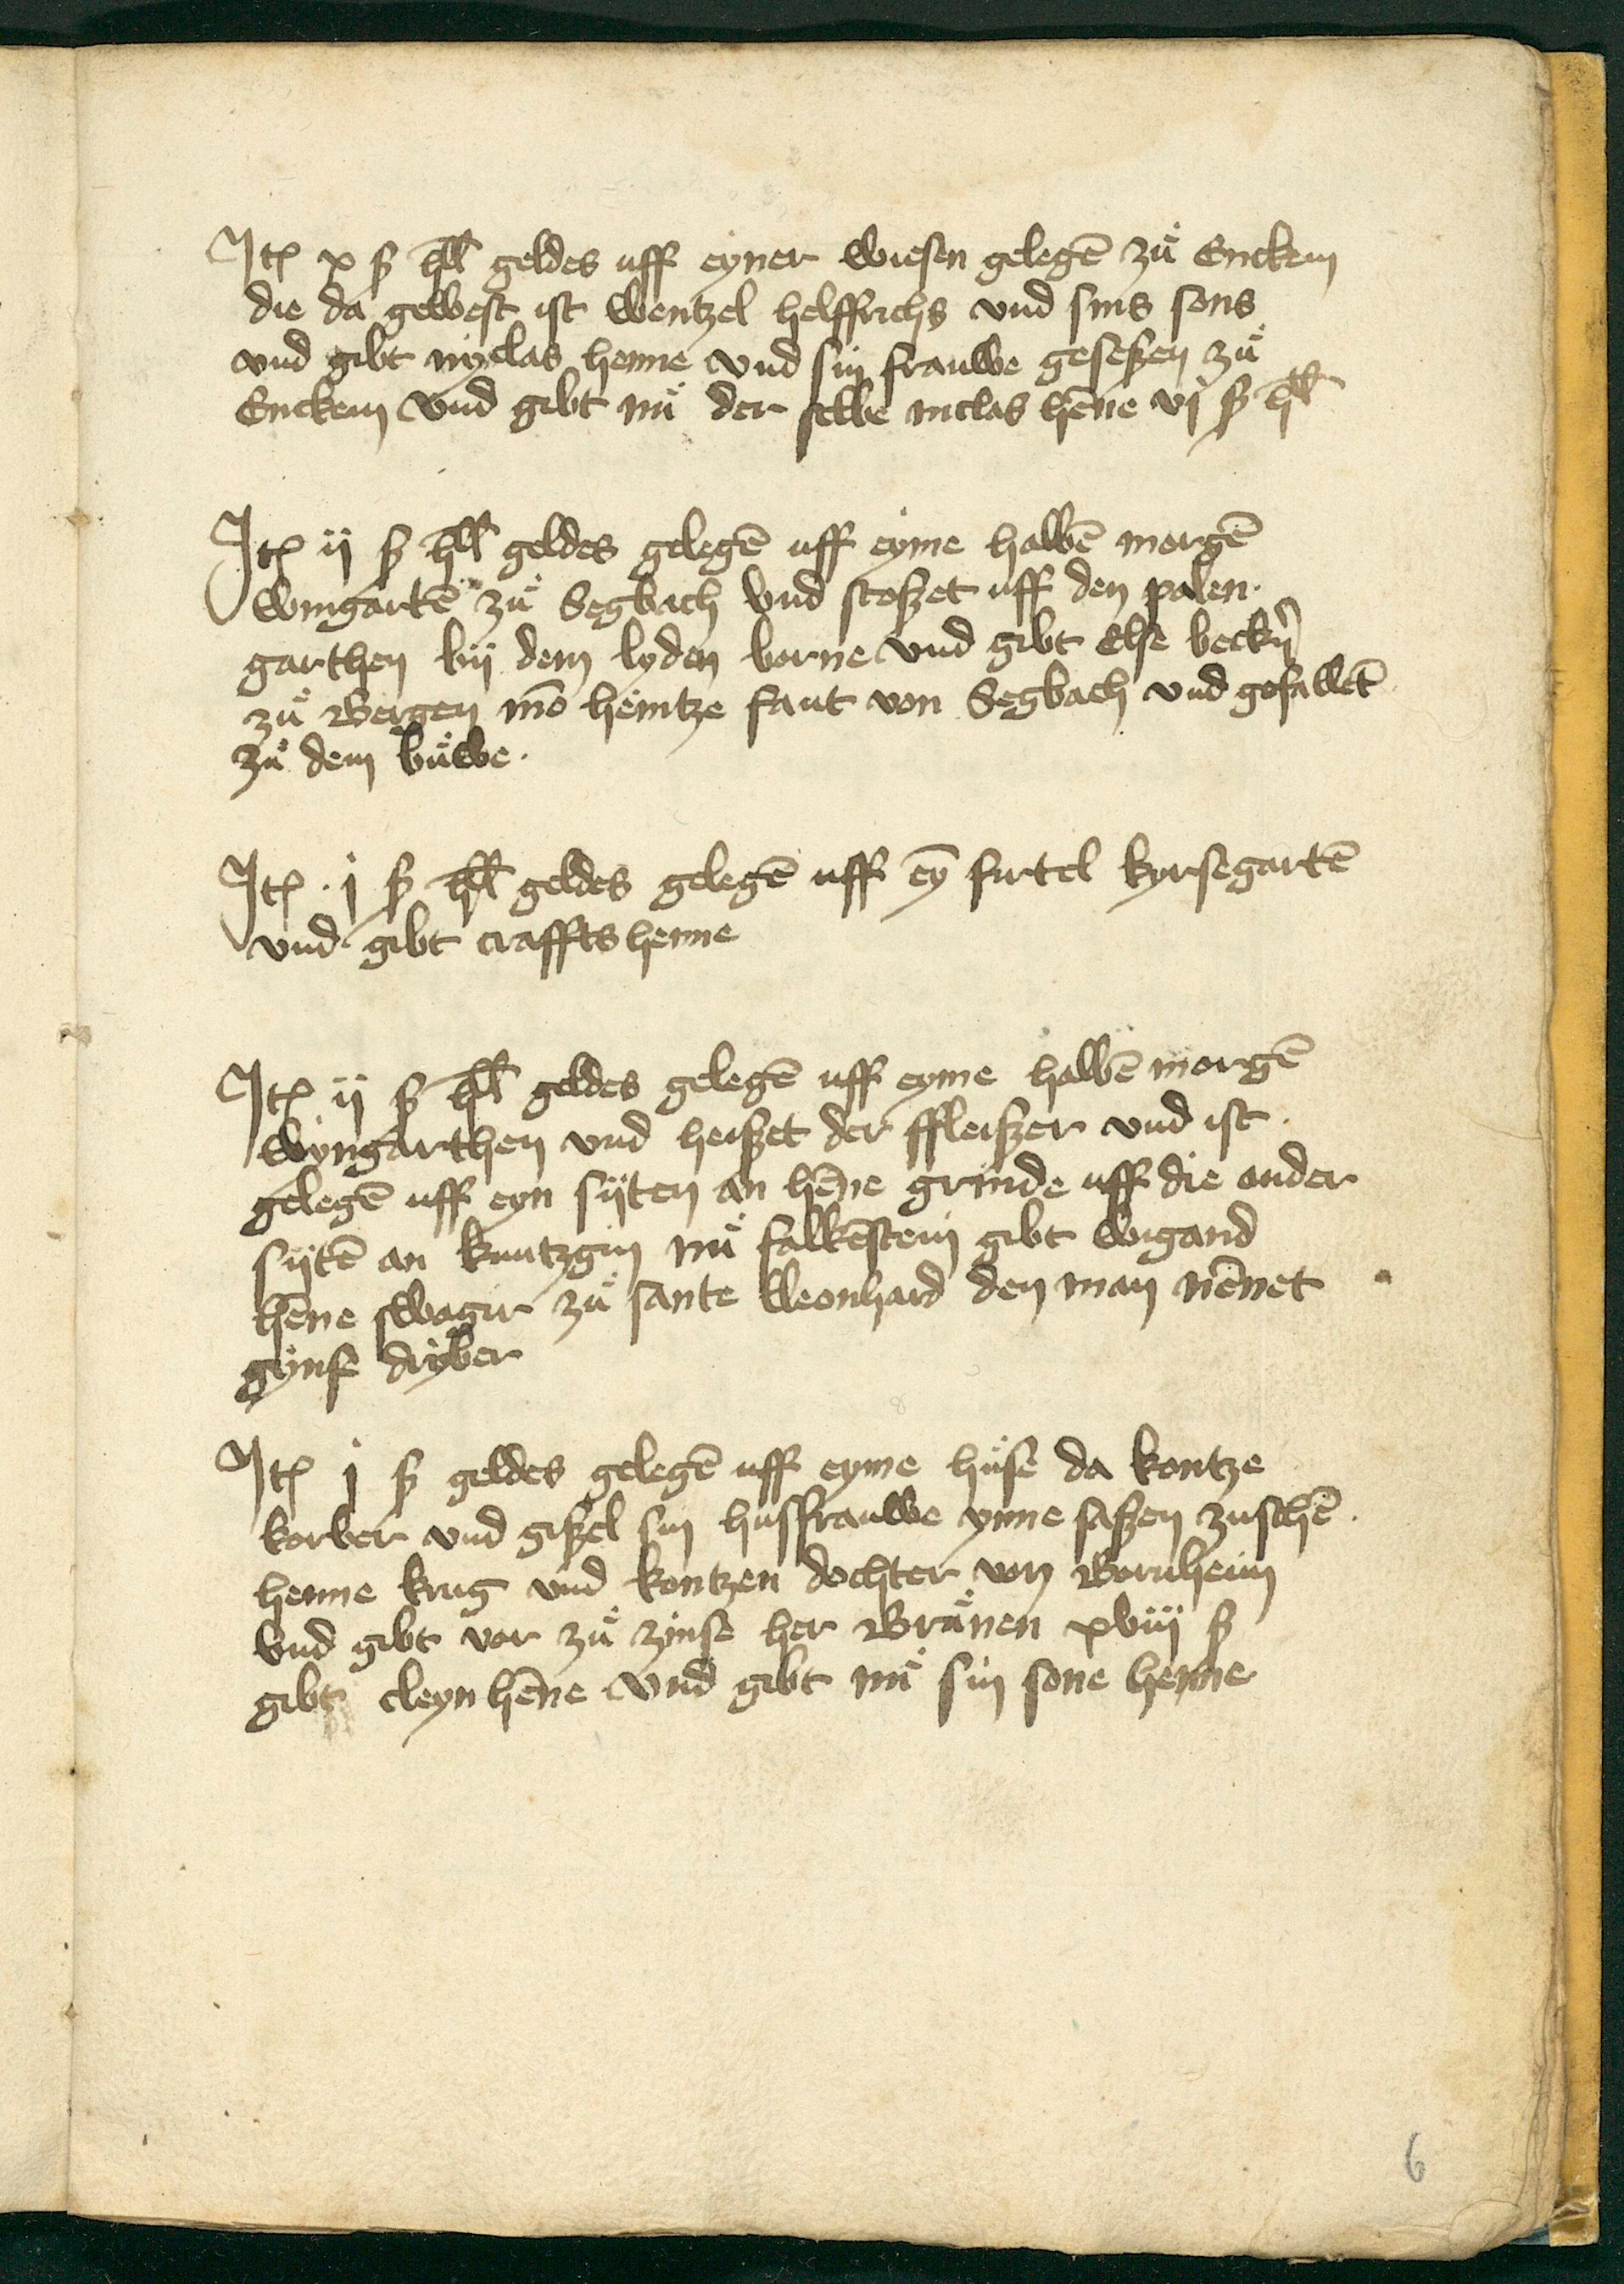 Itꝫ x ß hll geldes uff eyner wiesen gelegē zů Enckem
die da gewest ist wentzel helffrichs vnd sins sons
vnd gibt nyclas henne vnd sin frauwe geseßen zů
Enckem vnd gibt nů der selbe niclas hēne vj ß hll
Itꝫ ij ß hll geldes gelegē uff eyme halbē morgē
wingartē zů Segbach vnd stoßet uff den palen
garthen bij dem lyden borne vnd gibt Else beckrn̄
zů Bergen mō heintze faut von Segbach vnd gefallet
zů dem bůwe
Itꝫ j ß hll geldes gelegē uff eȳ firtel kyrsegartē
vnd gibt craffts henne
Itꝫ ij ß hll geldes gelegē uff eyme halbē morgē
wyngarthen vnd heißet der ffleiszer vnd ist
gelegē uff eyn sijten an hēne grinde uff die ander
sijtē an kuntzgin nů falkēstein gibt wigand
hēne swager zů sante Leonhard den man nēnet
gynse dryber
Itꝫ j ß geldes gelegē uff eyme hůse da kontze
korber vnd gißel sin husfrauwe ynne saßen zuschē
henne krug vnd kontzen dochter von Bornheim
vnd gibt vor zů zinse her Brůnen xviij ß
gibt cleyn hēne vnd gibt nů sin sone henne
6